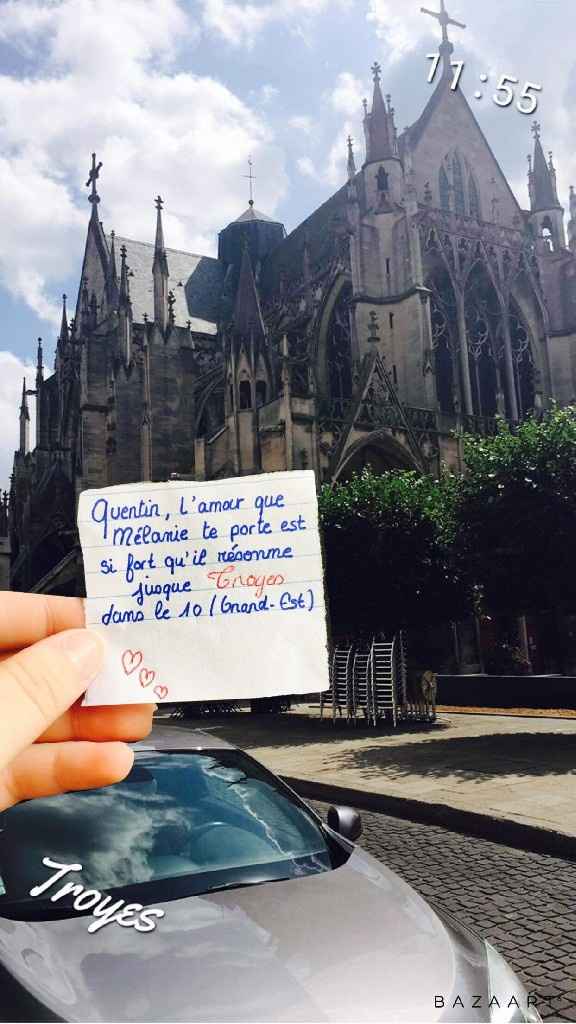 11:55
Quentin, l'amour que
Mélanie te porte est
si fort qu'il résonne
jusque Troyes
dans le 10 (Grand-Est)
Troyes
BAZAART